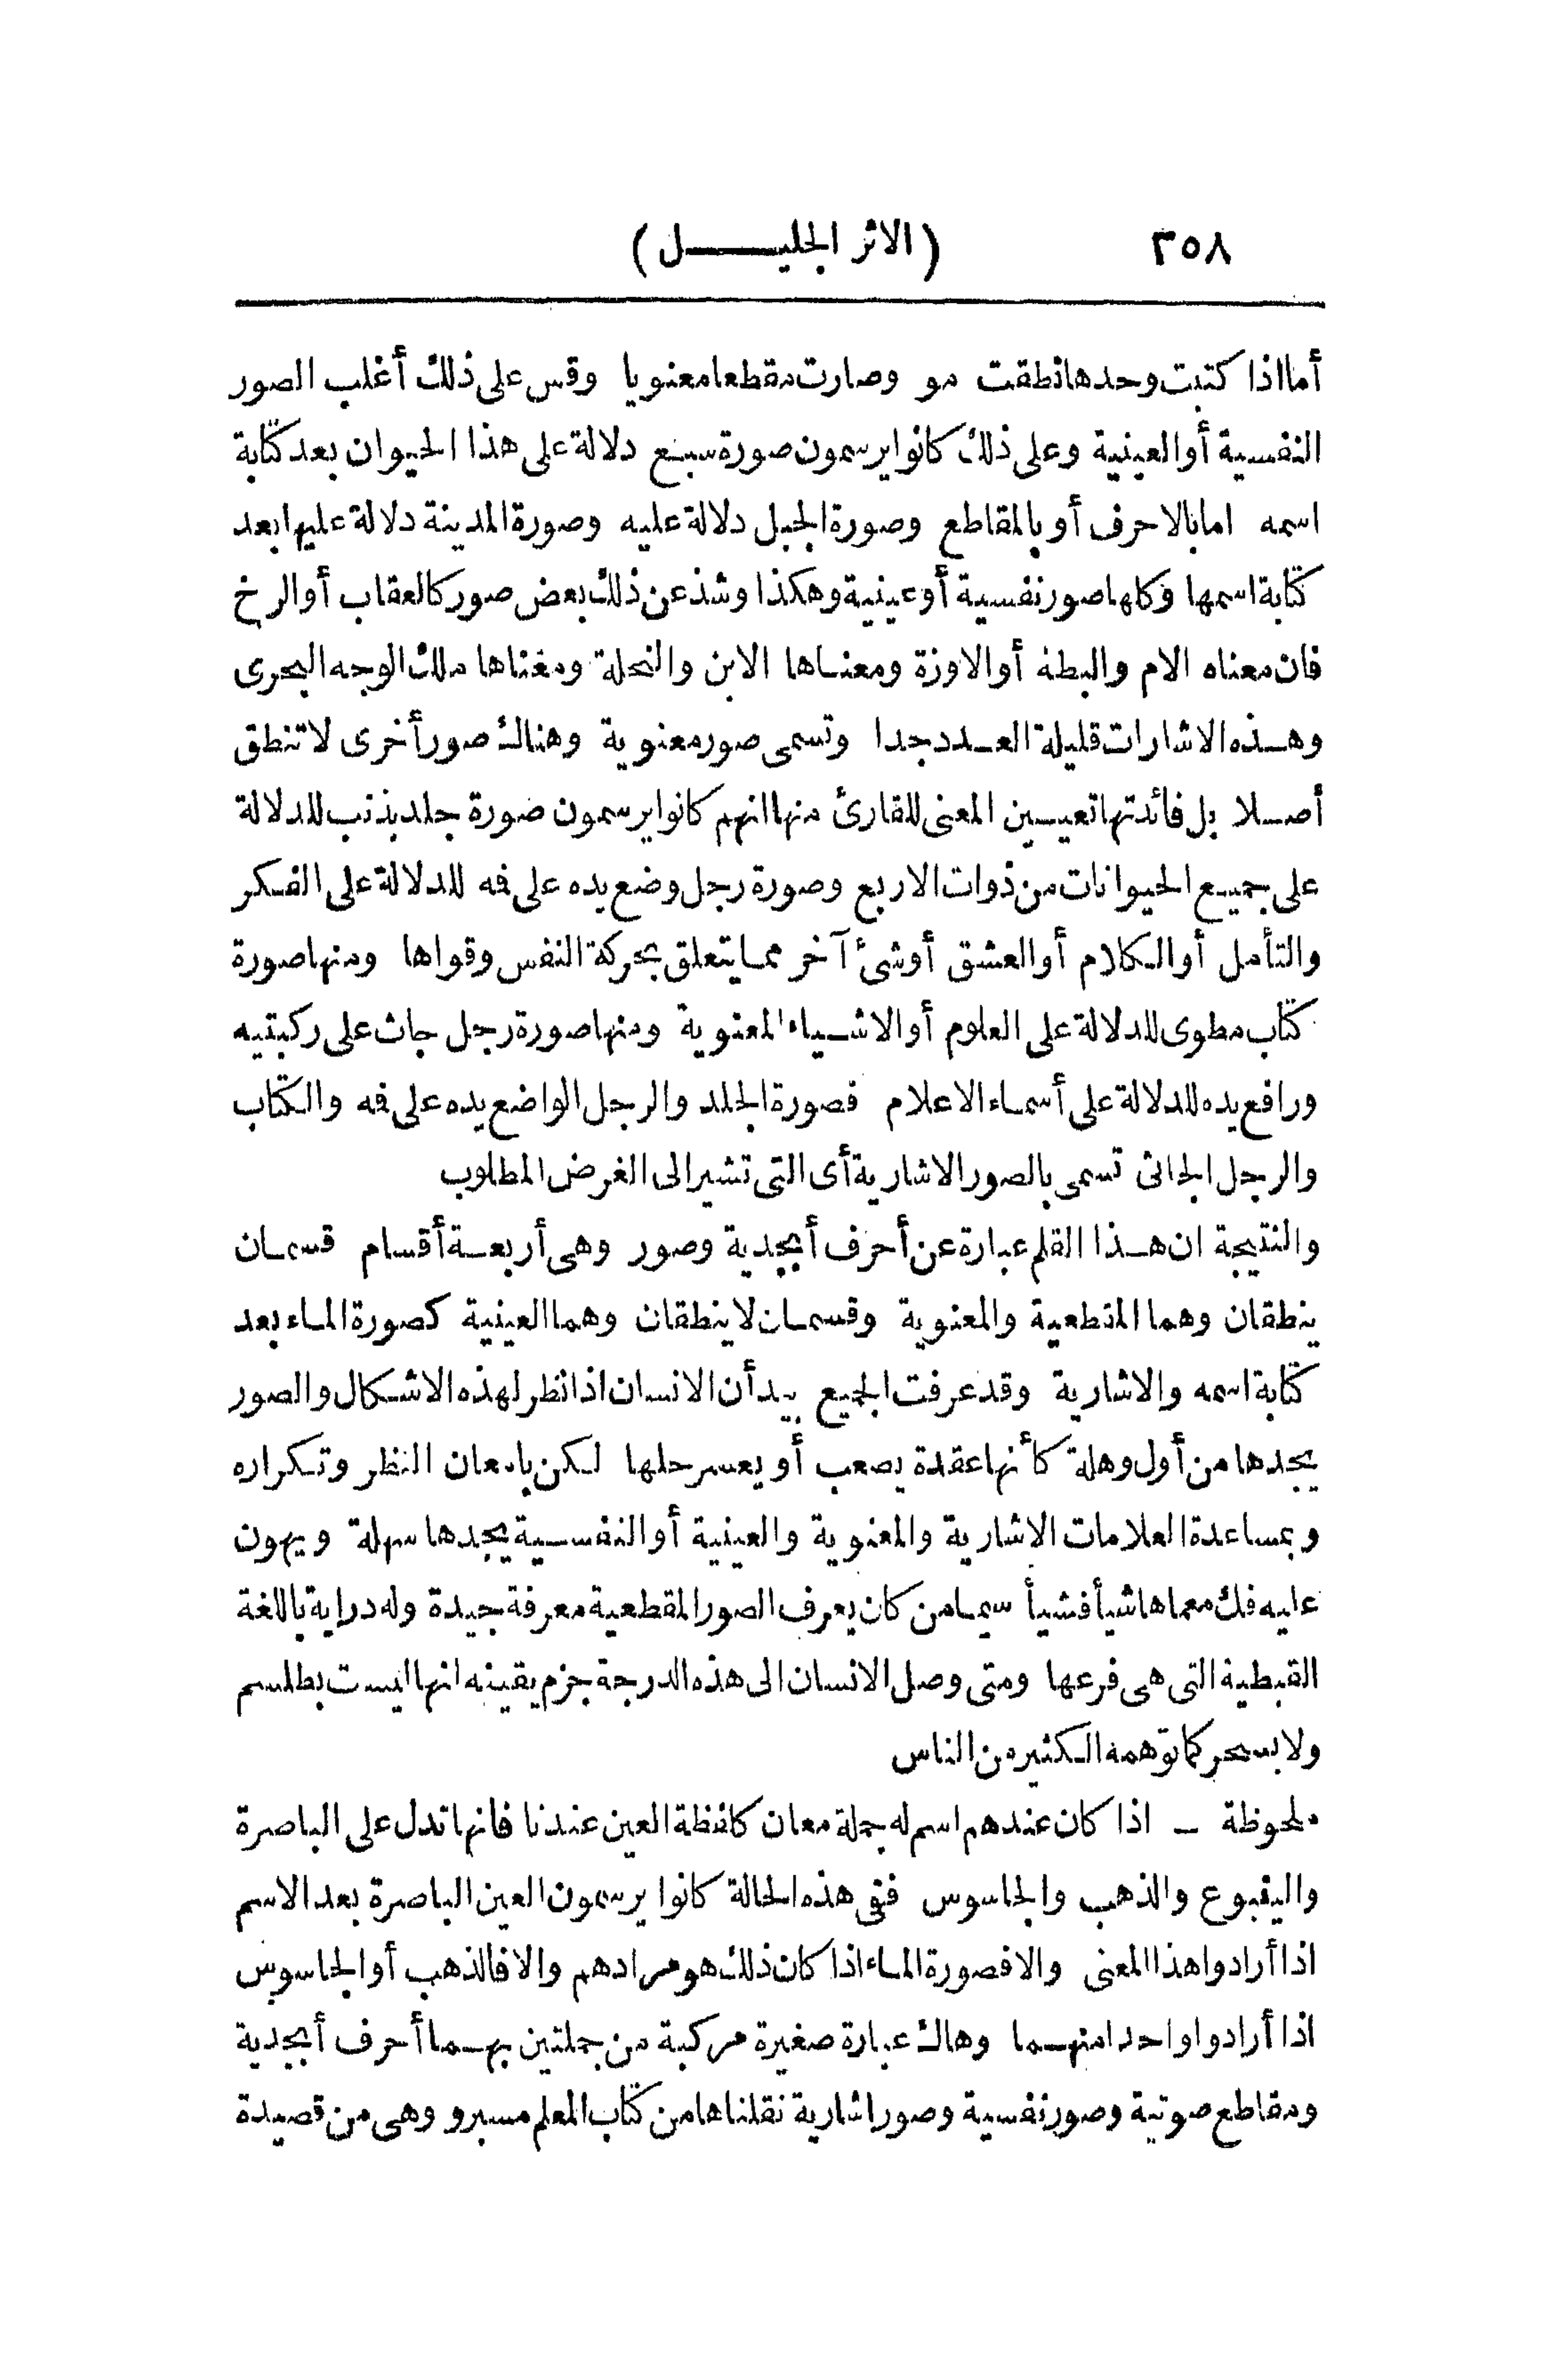 ٣٥٨ (الاثر الجليـــــل)
أما اذا كتبت وحدها نطقت مو وصارت مقطعا معنويا وقس على ذلك أغلب الصور
النفسية أو العينية وعلى ذلك كانوا يرسمون صورة سبع دلالة على هذا الحيوان بعد كتابة
اسمه اما بالاحرف أو بالمقاطع وصورة الجبل دلالة عليه وصورة المدينة دلالة عليها بعد
كتابة اسمها وكلها صور نفسية أو عينية وهكذا وشذ عن ذلك بعض صور كالعقاب أو الرخ
فان معناه الام والبطة أو الاوزة ومعناها الابن والنحلة ومعناها ملك الوجه البحرى
وهذه الاشارات قليلة العدد جدا وتسمى صور معنوية وهناك صور أخرى لا تنطق
أصلا بل فائدتها تعيين المعنى للقارئ منها انهم كانوا يرسمون صورة جلد بذنب للدلالة
على جميع الحيوانات من ذوات الاربع وصورة رجل وضع يده على فمه للدلالة على الفكر
والتأمل أو الكلام أو العشق أو شئ آخر مما يتعلق بحركة النفس وقواها ومنها صورة
كتاب مطوى للدلالة على العلوم أو الاشياء المعنوية ومنها صورة رجل جاث على ركبتيه
ورافع يده للدلالة على أسماء الاعلام فصورة الجلد والرجل الواضع يده على فه والكتاب
والرجل الجاثى تسمى بالصور الاشارية أى التى تشير الى الغرض المطلوب
والنتيجة ان هذا القلم عبارة عن أحرف أبجدية وصور وهى أربعة أقسام قسمان
ينطقان وهما المقطعية والمعنوية وقسمان لا ينطقان وهما العينية كصورة الماء بعد
كتابة اسمه والاشارية وقد عرفت الجميع بيد أن الانسان اذا نظر لهذه الاشكال والصور
يجدها من أول وهلة كأنها عقدة يصعب أو يعسر حلها لكن بامعان النظر وتكراره
وبمساعدة العلامات الاشارية والمعنوية والعينية أو النفسية يجدها سهلة ويهون
عليه فك معماها شيأ فشيأ سيما من كان يعرف الصور المقطعية معرفة جيدة وله دراية باللغة
القبطية التى هى فرعها ومتى وصل الانسان الى هذه الدرجة جزم يقينه انها ليست بطلسم
ولا بسحر كما توهمه الكثير من الناس
ملحوظة ــ اذا كان عندهم اسم له جملة معان كلفظة العين عندنا فانها تدل على الباصرة
والينبوع والذهب والجاسوس ففى هذه الحالة كانوا يرسمون العين الباصرة بعد الاسم
اذا أرادوا هذا المعنى والا فصورة الماء اذا كان ذلك هو مرادهم والا فالذهب أو الجاسوس
اذا أرادوا واحدا منهما وهاك عبارة صغيرة مركبة من جملتين بهما أحرف أبجدية
ومقاطع صوتية وصور نفسية وصور اشارية نقلناها من كتاب المعلم مسبرو وهى من قصيدة